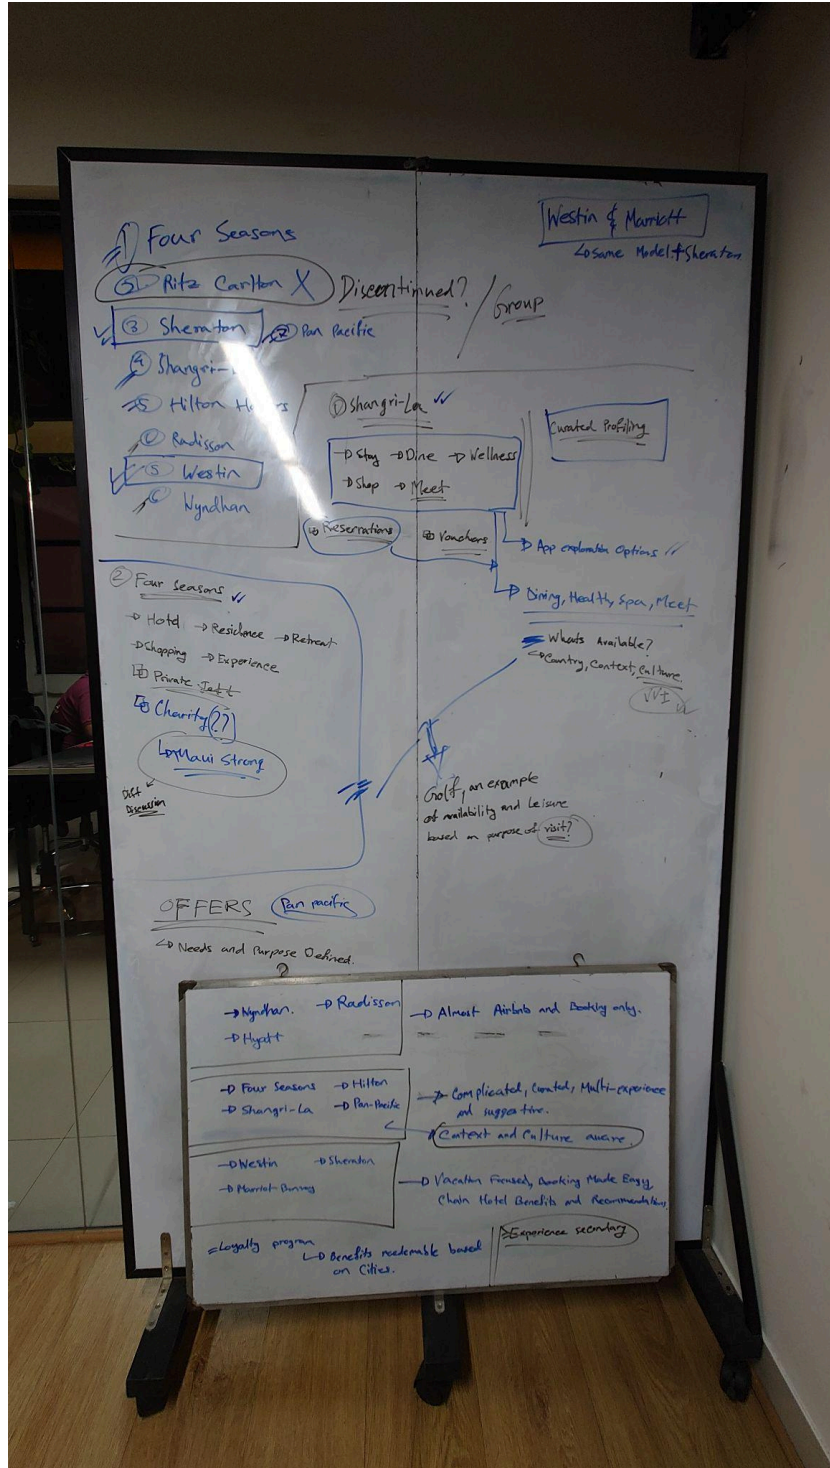 1 Four Seasons
5 Ritz Carlton X Discontinued? / Group
3 Sheraton 2 Pan Pacific
4 Shangri-
5 Hilton
6 Radisson
5 Westin
6 Wyndhan
Westin & Marriott
↳ Same Model + Sheraton
① Shangri-La ✓✓
→ Stay → Dine → Wellness
→ Shop → Meet
Reservations
Vouchers
Curated Profiling
→ App exploration Options ✓✓
→ Dining, Health, Spa, Meet
Whats Available?
↳ Country, Context, Culture
② Four Seasons ✓✓
→ Hotel → Residence → Retreat
→ Shopping → Experience
Private Jet
Charity (??)
↳ Maui Strong
Discussion
Golf, an example
of availability and Leisure
based on purpose of visit?
OFFERS Pan pacific
↳ Needs and Purpose Defined.
→ Wyndhan. → Radisson
→ Hyatt
→ Almost Airbnb and Booking only.
→ Four Seasons → Hilton
→ Shangri-La → Pan-Pacific
→ Complicated, Curated, Multi-experience
and suggestive.
Context and Culture aware.
→ Westin → Sheraton
→ Marriot-Bonvoy
→ Vacation Focused, Booking Made Easy,
Chain Hotel Benefits and Recommendations,
Experience secondary
= Loyalty program
↳ Benefits reedemable based
on Cities.